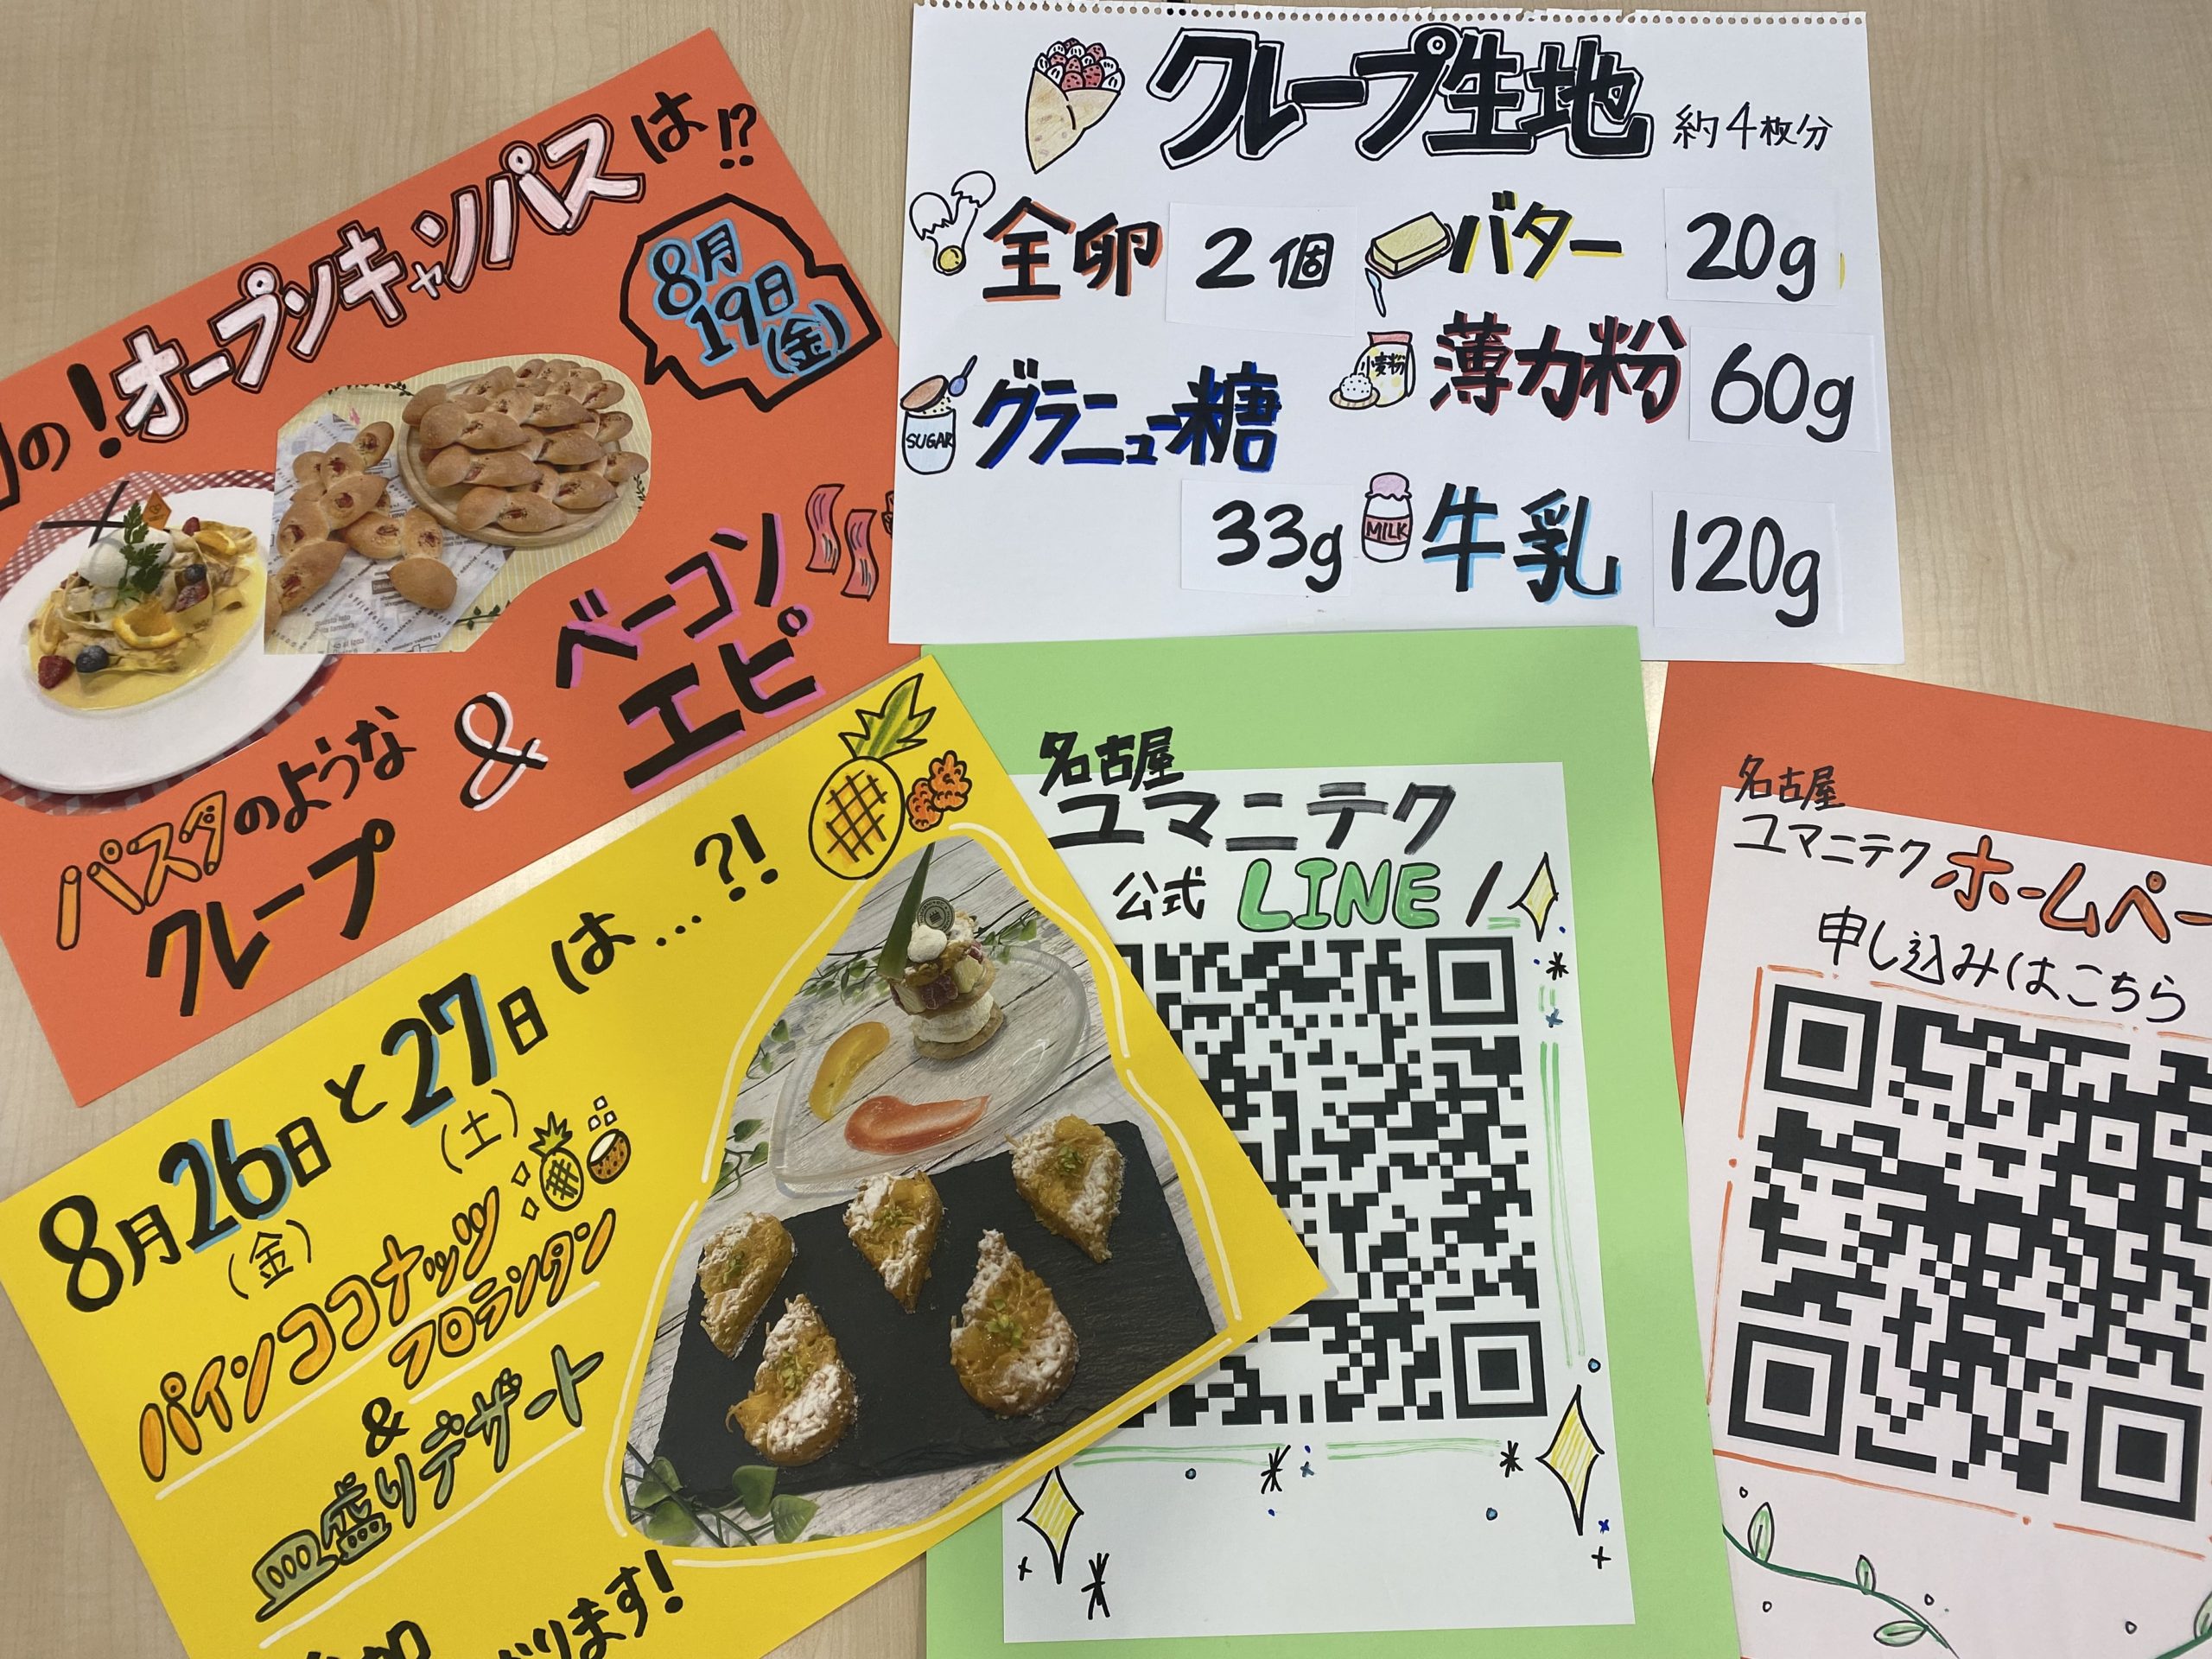 の!オープンキャンパスは!?
8月
19日
(金)
ベーコン
エピ
&
パスタのような
クレープ
クレープ生地 約4枚分
全卵 2個
バター 20g
薄力粉 60g
小麦粉
グラニュー糖
SUGAR
33g
牛乳 120g
MILK
8月26日と27日は...?!
(金)
(土)
パインココナッツ
フロランタン
&
皿盛りデザート
ります!
名古屋
ユマニテク
公式 LINE
名古屋
ユマニテク ホームペー
申し込みはこちら